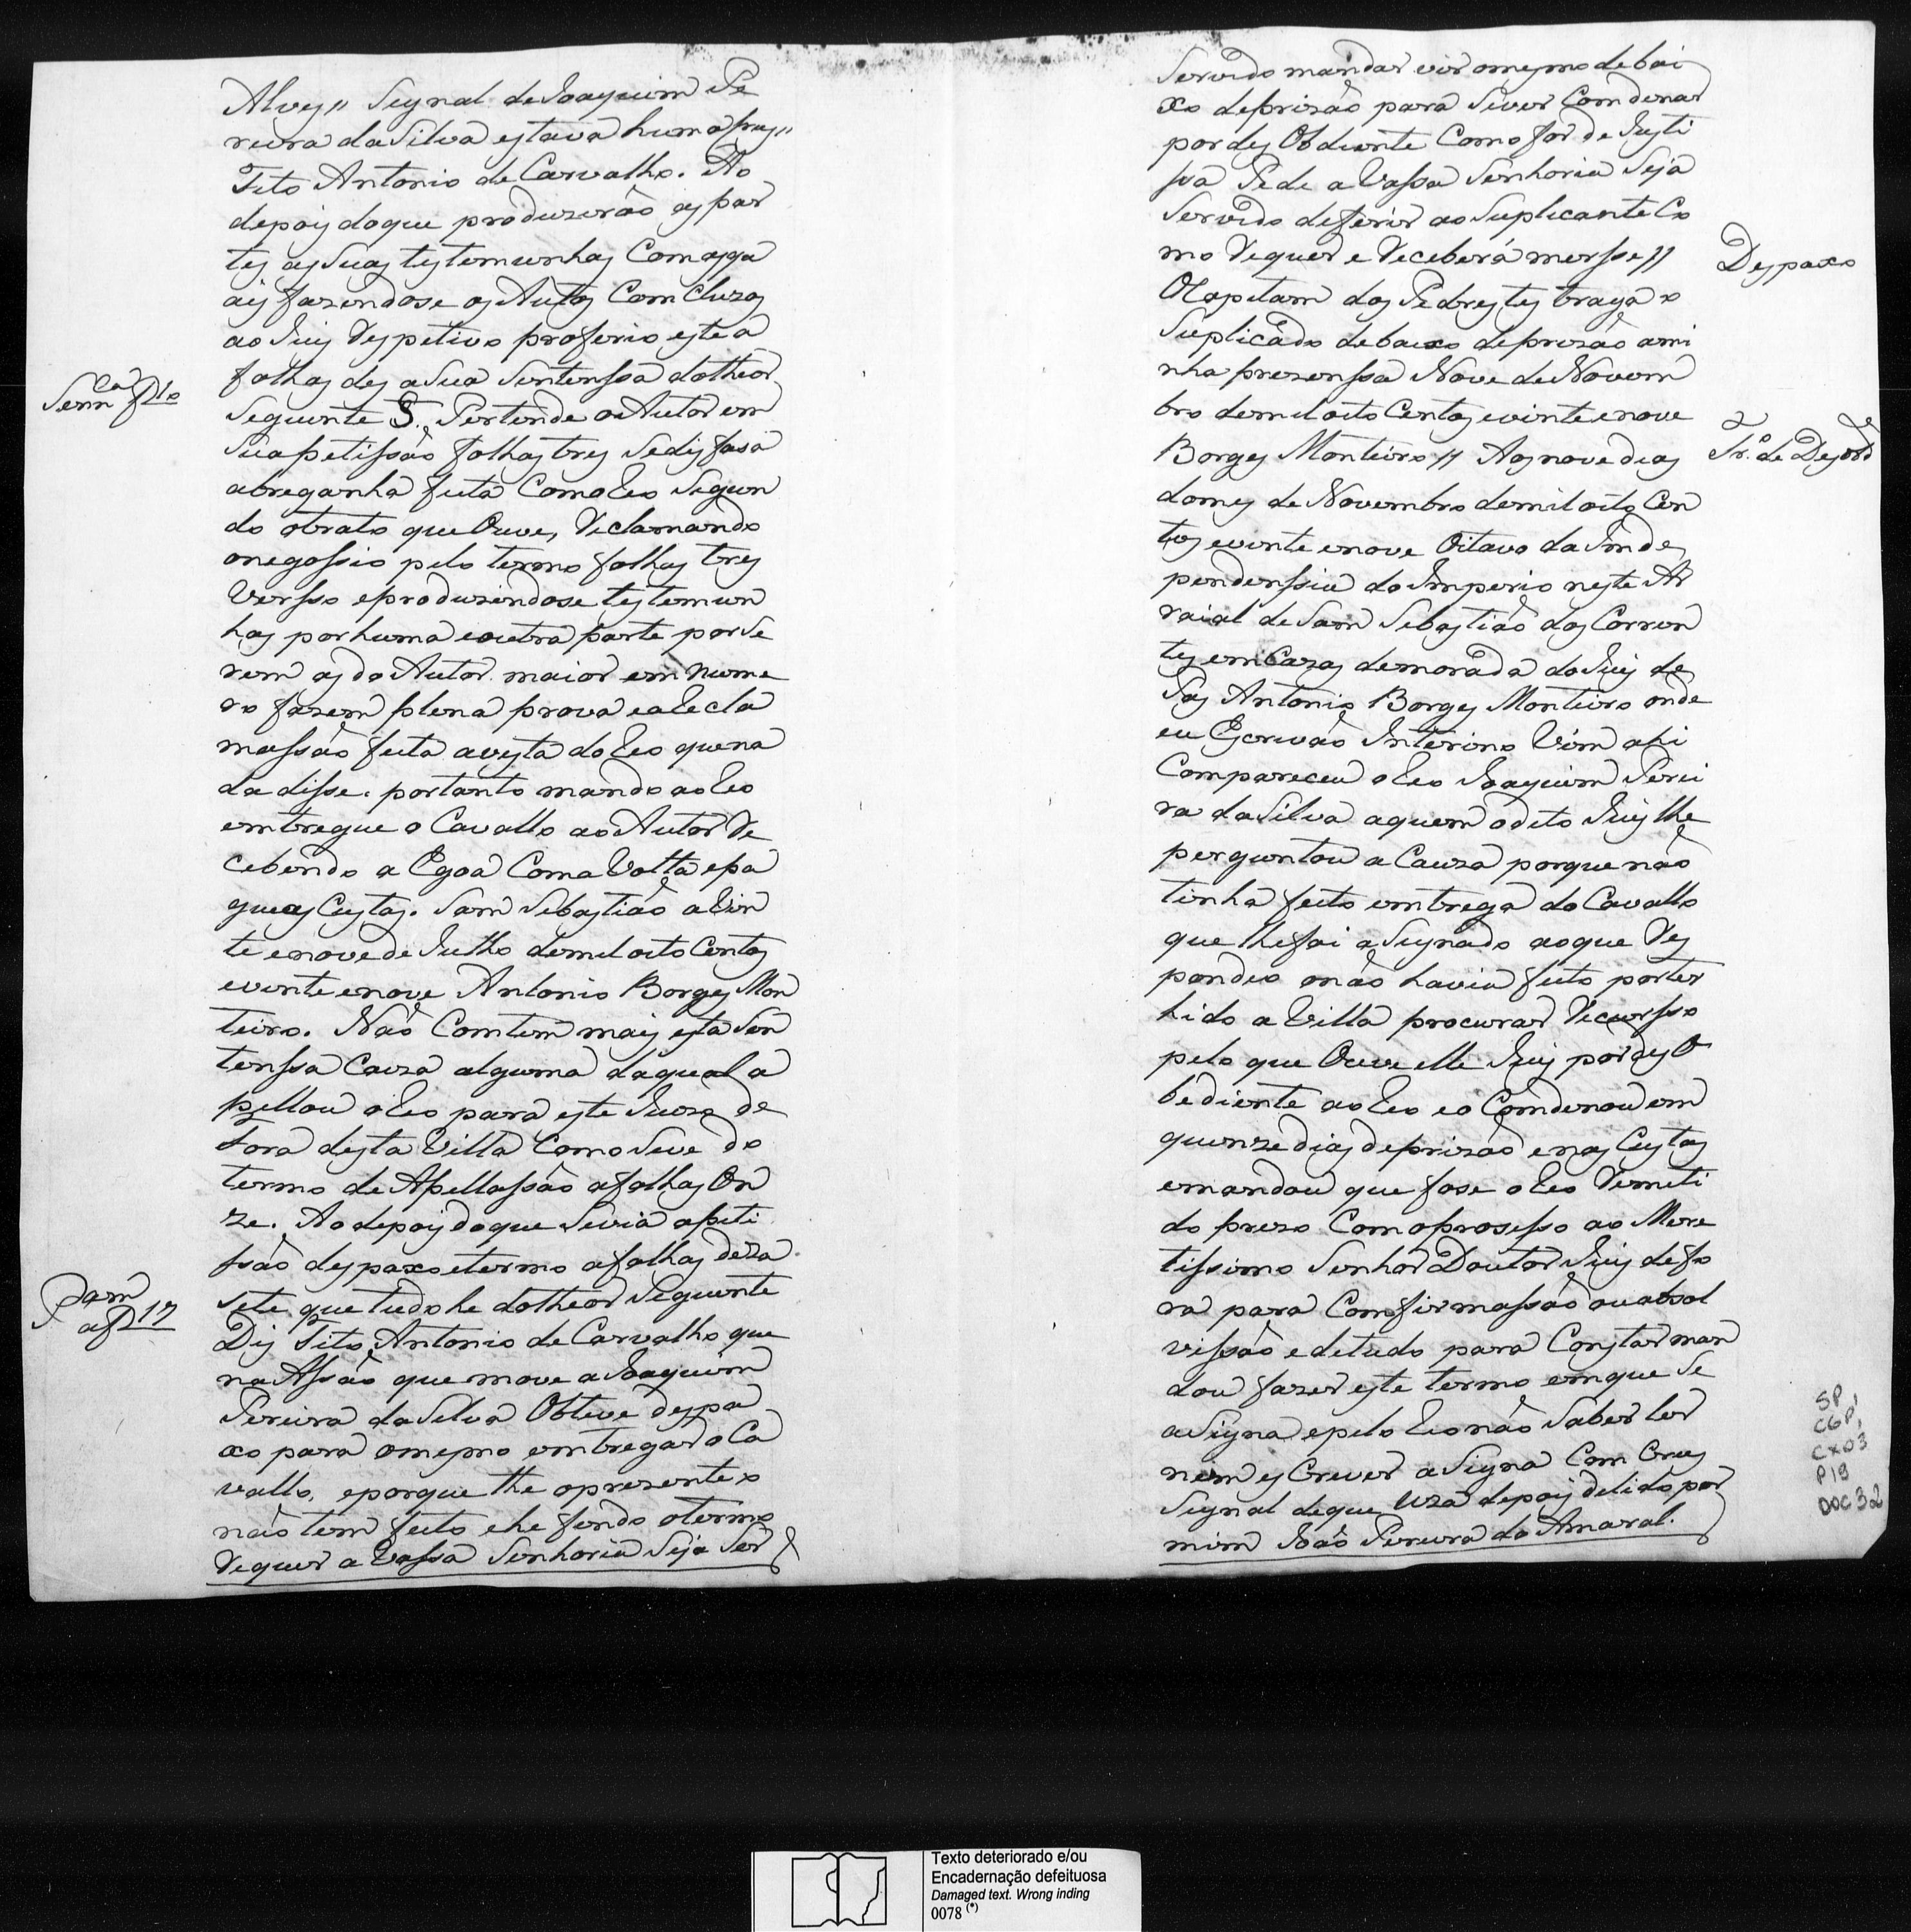 Alves" Signal de Joaquim Pe
reira da Silva estava huma crus"
Tito Antonio de Carvalho. Ao
depois doque produzirão as par
tes as Suas testemunhas Com as qua
ais fazendose os Autos Comcluzos
ao Juis Respetivo proferio este a
folhas des a Sua Sentenssa dotheor
Seguinte S. Pertende o Autor em
Sua petissão folhas tres Se disfasa
abreganha feita Como Reo Segun
do otrato que Ouve, Reclamando
onegossio pelo termo folhas tres
Versso eproduzindose testemun
has por huma eoutra parte por Se
rem as do Autor maior em nume
ro fazem plena prova ea Recla
massão feita avista do Reo que na
da disse. portanto mando ao Reo
emtregue o Cavallo ao Autor Re
cebendo a Egoa Coma Volta epa
gue as Custas. Sam Sebastião a Vin
te enove de Julho demil oito Centos
evinte enove Antonio Borges Mon
teiro. Não Comtem mais esta Sen
tenssa Couza alguma da qual a
pellou o Reo para este Juizo de
fora desta Villa Como Seve do
termo de Apellassão afolhas On
ze. Ao depois doque Sevia a peti
ssão despaxo etermo afolhas deza
Sete que tudo he dotheor Seguinte
Dis Tito Antonio de Carvalho que
na Assão que move a Joaquim
Pereira da Silva Obteve despa
xo para omesmo emtregar o Ca
vallo, eporque the opresente o
não tem feito ehe findo otermo
Requer a Vossa Senhoria Seja Ser
Senn ca f 10
Pam
af 17
Servido mandar vir omesmo debai
xo deprizão para Siver Comdenar
por des Obdiente Como for de Justi
ssa Pede a Vossa Senhoria Seja
Servido deferir ao Suplicante Co
mo Requer e Receberá mersse"
O Capitam dos Pedrestes traga o
Suplicado debaixo deprizão ami
nha prezenssa Nove de Novem
bro demil oito Centos evinte enove
Borges Monteiro" Aos nove dias
domes de Novembro demil oito Cen
tos evinte enove Oitavo da Inde
pendenssia do Imperio neste Ar
raial de Sam Sebastião dos Corren
tes em Cazas demorada do Juis de
Pas Antonio Borges Monteiro onde
eu Escrivão Interino Vim ahi
Compareceu o Reo Joaquim Perei
ra da Silva aquem odito Juis lhe
perguntou a Cauza porque não
tinha feito emtrega do Cavallo
que lhe foi aSignado aoque Res
pondeo onão havia feito por ter
hido a Villa procurar Recursso
pelo que Ouve elle Juis por des O
bediente ao Reo eo Comdenou em
quinze dias deprizão enas Custas
emandou que fose o Reo Remeti
do prezo Com oprosesso ao Mere
tissimo Senhor Doutor Juis defo
ra para Comfirmassão ouabsol
vissão e detudo para Constar man
dou fazer este termo emque Se
aSigna epelo Reo não Saber ler
nem esCrever aSigna Com Crus
Signal deque Uza depois delido por
mim João Pereira do Amaral.
Despaxo
Tr.º de Desobe
SP,
C6P,
CX03
P19
DOC32
Texto deteriorado e/ou
Encadernação defeituosa
Damaged text. Wrong inding
0078 (*)